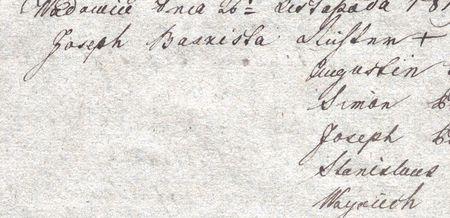 Wadowice dnia 26= Listopada 181
Joseph Baarista Küster +
Augustin
Simon
Joseph
Stanislaus
Wayciech